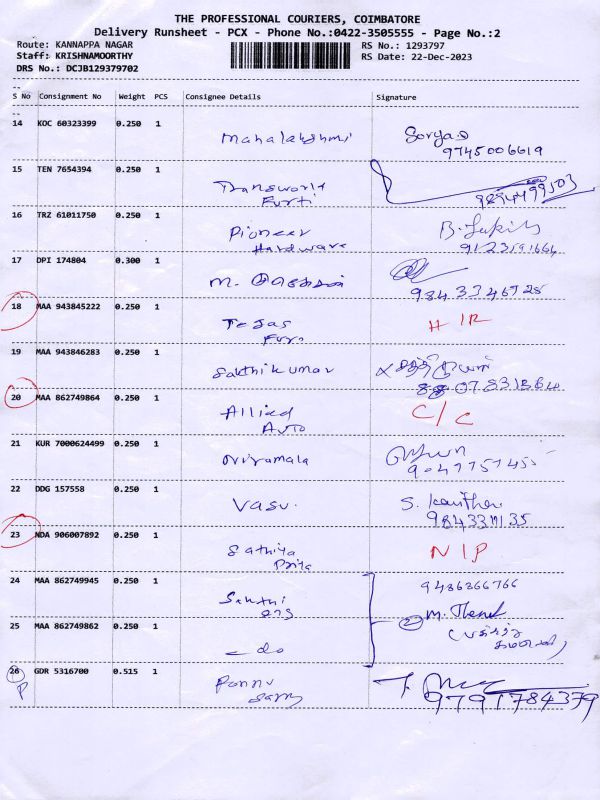 THE PROFESSIONAL COURIERS, COIMBATORE
Delivery Runsheet - PCX - Phone No.:0422-3505555 - Page No.:2
Route: KANNAPPA NAGAR RS No.: 1293797
Staff: KRISHNAMOORTHY RS Date: 22-Dec-2023
DRS No.: DCJB129379702
S No Consignment No Weight PCS Consignee Details Signature
14 KOC 60323399 0.250 1 Mahalakshmi
9745006619
15 TEN 7654394 0.250 1 Transworld
Furti 9894499503
16 TRZ 61011750 0.250 1 Pioneer
Hardware 9123591664
17 DPI 174804 0.300 1 M.
9843346528
18 MAA 943845222 0.250 1 Tejas
19 MAA 943846283 0.250 1 Sakthikumar
20 MAA 862749864 0.250 1 Allied C/C
Auto
21 KUR 7000624499 0.250 1
22 DDG 157558 0.250 1 Vasu. S.
23 NDA 906007892 0.250 1 Sathiya N/P
Priya
24 MAA 862749945 0.250 1 9486366766
25 MAA 862749862 0.250 1 - do
26 GDR 5316700 0.515 1 Ponnu
P Samy 9791784379